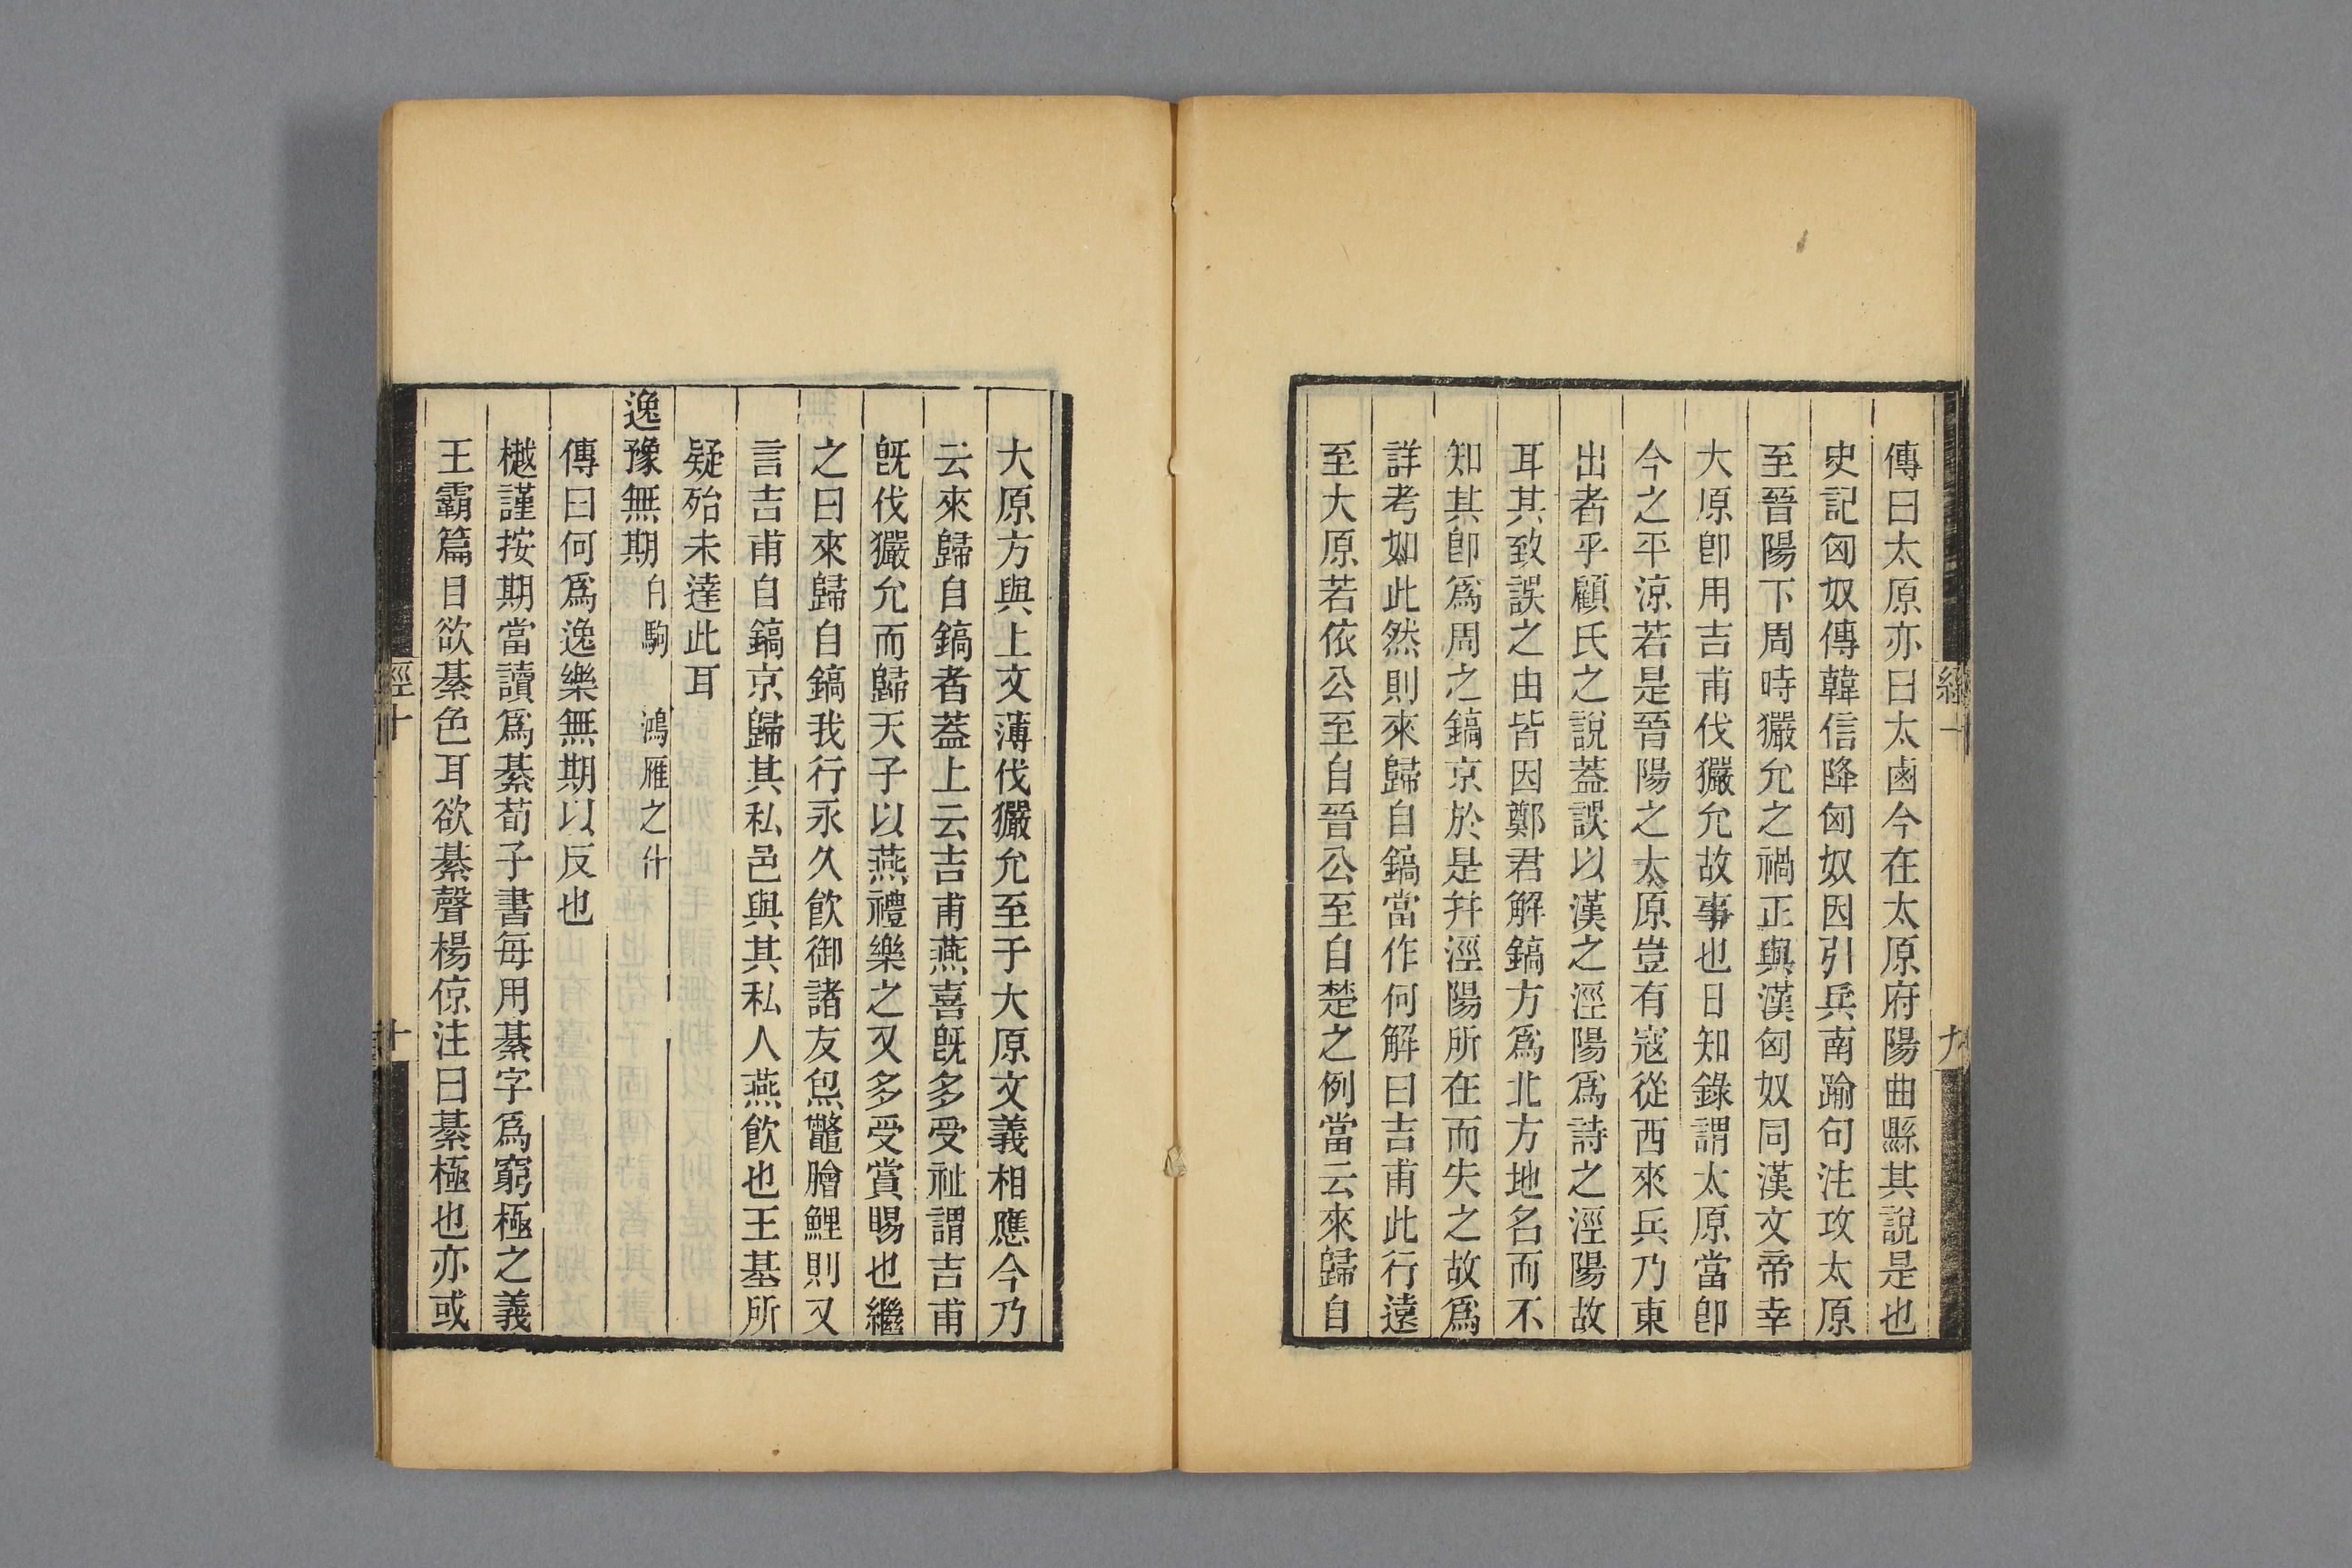 傳曰太原亦曰太鹵今在太原府陽曲縣其說是也
史記匈奴傳韓信降匈奴因引兵南踰句注攻太原
至晉陽下周時玁允之禍正與漢匈奴同漢文帝幸
大原卽用吉甫伐玁允故事也日知錄謂太原當卽
今之平涼若是晉陽之太原豈有寇從西來兵乃東
出者乎顧氏之說蓋誤以漢之涇陽爲詩之涇陽故
耳其致誤之由皆因鄭君解鎬方爲北方地名而不
知其卽爲周之鎬京於是幷涇陽所在而失之故爲
詳考如此然則來歸自鎬當作何解曰吉甫此行遠
至大原若依公至自晉公至自楚之例當云來歸自
大原方與上文薄伐玁允至于大原文義相應今乃
云來歸自鎬者蓋上云吉甫燕喜旣多受祉謂吉甫
旣伐玁允而歸天子以燕禮樂之又多受賞賜也繼
之曰來歸自鎬我行永久飮御諸友炰鼈膾鯉則又
言吉甫自鎬京歸其私邑與其私人燕飮也王基所
疑殆未達此耳
逸豫無期 白駒 鴻雁之什
傳曰何爲逸樂無期以反也
樾謹按期當讀爲綦荀子書每用綦字爲窮極之義
王霸篇目欲綦色耳欲綦聲楊倞注曰綦極也亦或
經十
十